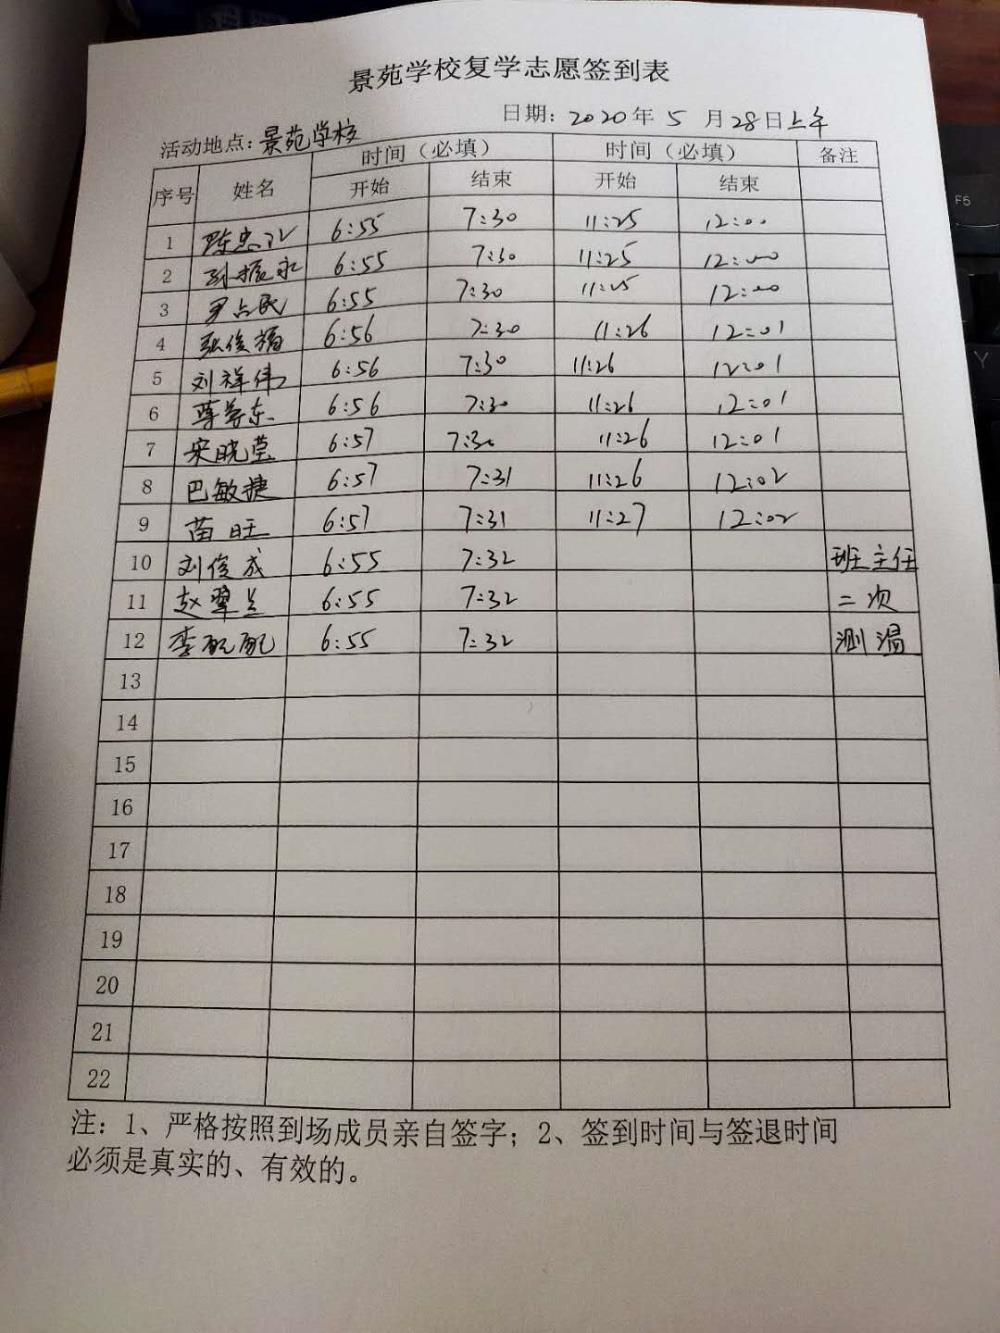 景苑学校复学志愿签到表
日期: 2020年 5 月28日上午
活动地点: 景苑学校
序号 姓名 时间（必填） 时间（必填） 备注
开始 结束 开始 结束
1 陈忠 6:55 7:30 11:25 12:00
2 孙振永 6:55 7:30 11:25 12:00
3 罗占民 6:55 7:30 11:25 12:00
4 张俊福 6:56 7:30 11:26 12:01
5 刘祥伟 6:56 7:30 11:26 12:01
6 东 6:56 7:30 11:26 12:01
7 宋晓莹 6:57 7:30 11:26 12:01
8 巴敏捷 6:57 7:31 11:26 12:02
9 苗旺 6:57 7:31 11:27 12:02
10 刘俊成 6:55 7:32 班主任
11 赵翠兰 6:55 7:32 二次
12 李 6:55 7:32 测温
13
14
15
16
17
18
19
20
21
22
注：1、严格按照到场成员亲自签字；2、签到时间与签退时间
必须是真实的、有效的。
F5
Y